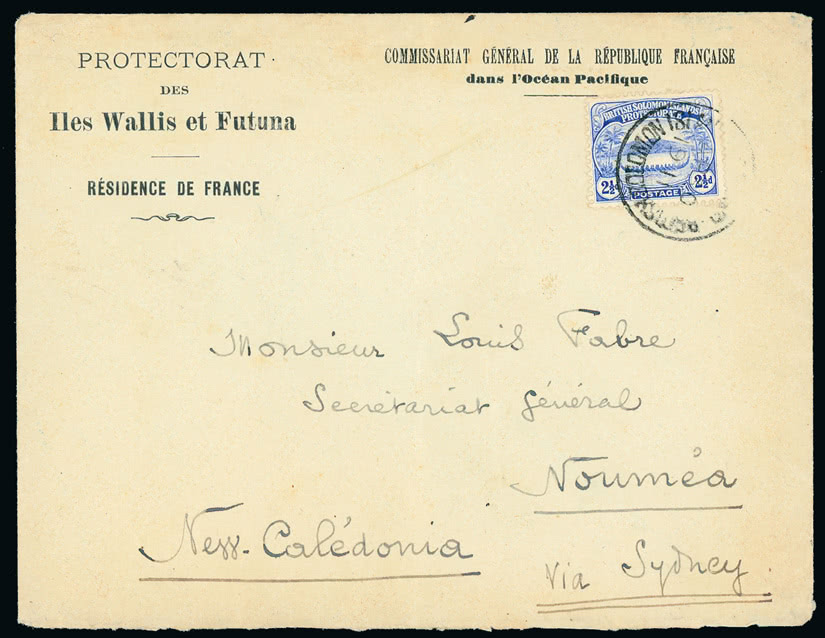 PROTECTORAT
DES
Iles Wallis et Futuna
RÉSIDENCE DE FRANCE
COMMISSARIAT GÉNÉRAL DE LA RÉPUBLIQUE FRANÇAISE
dans l'Océan Pacifique
BRITISH SOLOMON ISLANDS
PROTECTORATE
2½d 2½d
POSTAGE
BRITISH SOLOMON IS
Monsieur Louis Fabre
Secrétariat général
Nouméa
New-Calédonia
via Sydney